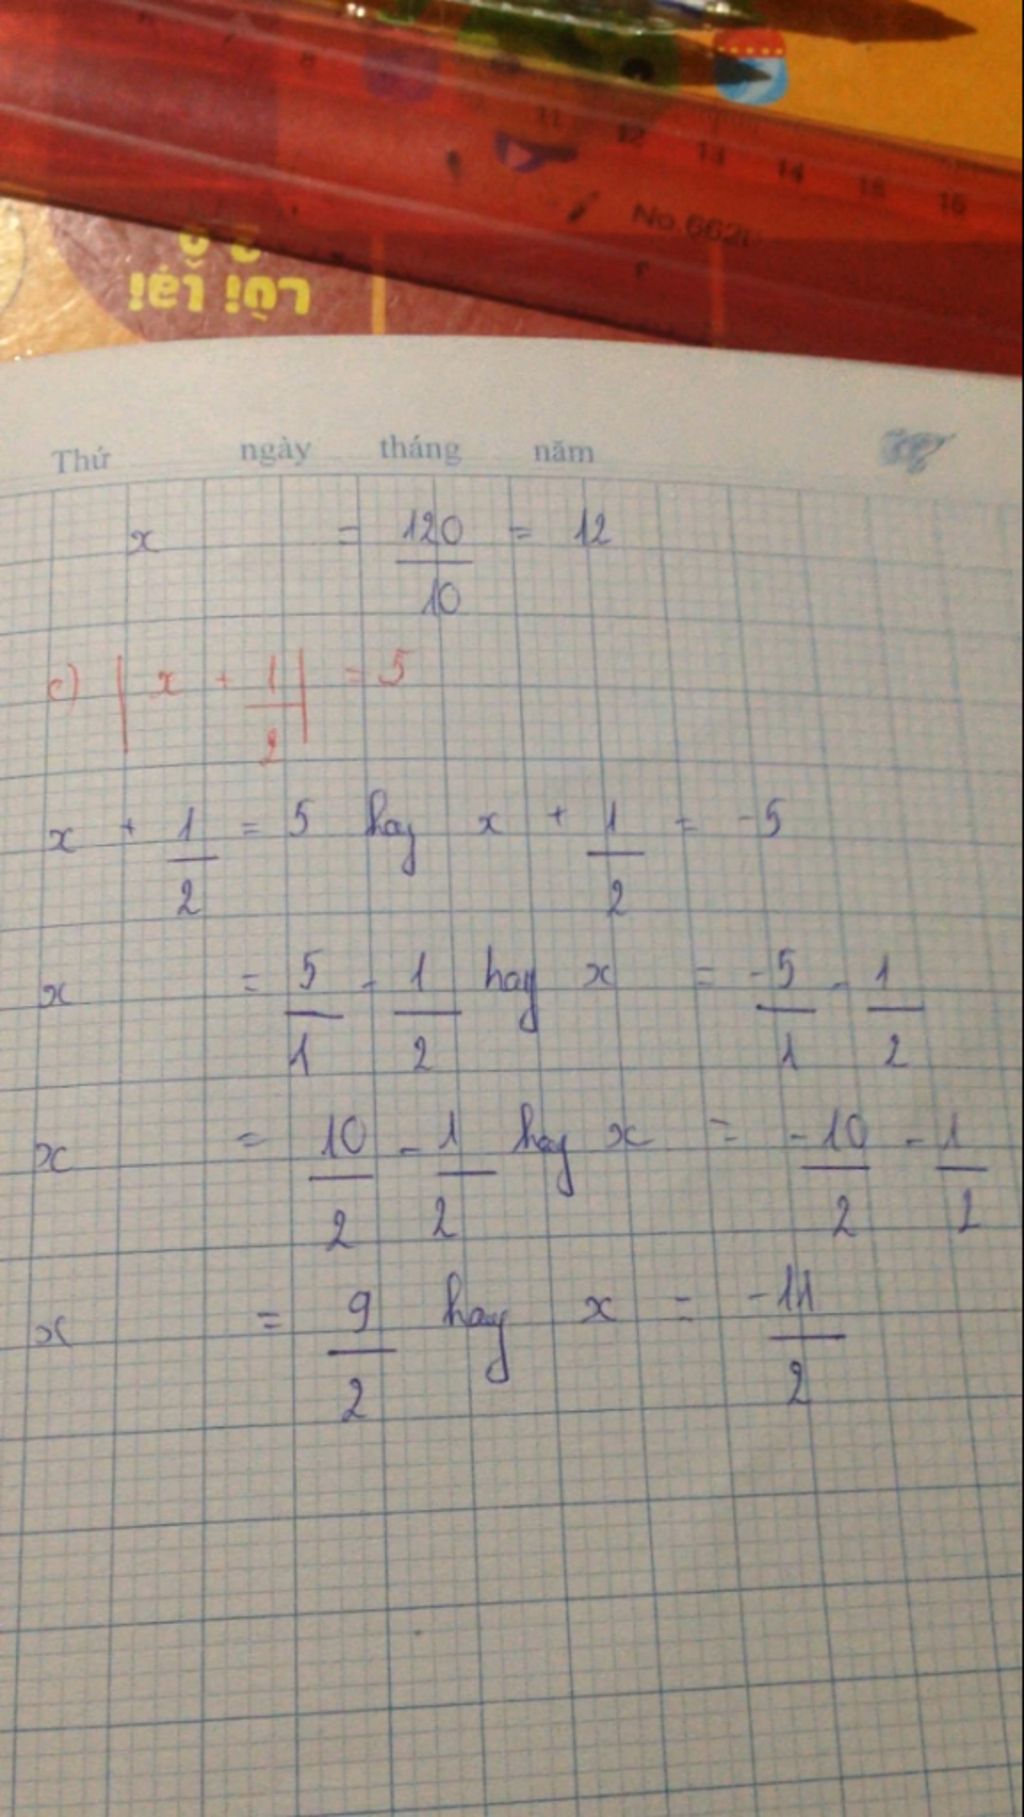 8 11 12 13 14 15 16
No.662
Lời Lại
Thứ ngày tháng năm
x = 120/10 = 12
c) |x + 1/2| = 5
x + 1/2 = 5 hay x + 1/2 = -5
x = 5/1 - 1/2 hay x = -5/1 - 1/2
x = 10/2 - 1/2 hay x = -10/2 - 1/2
x = 9/2 hay x = -11/2